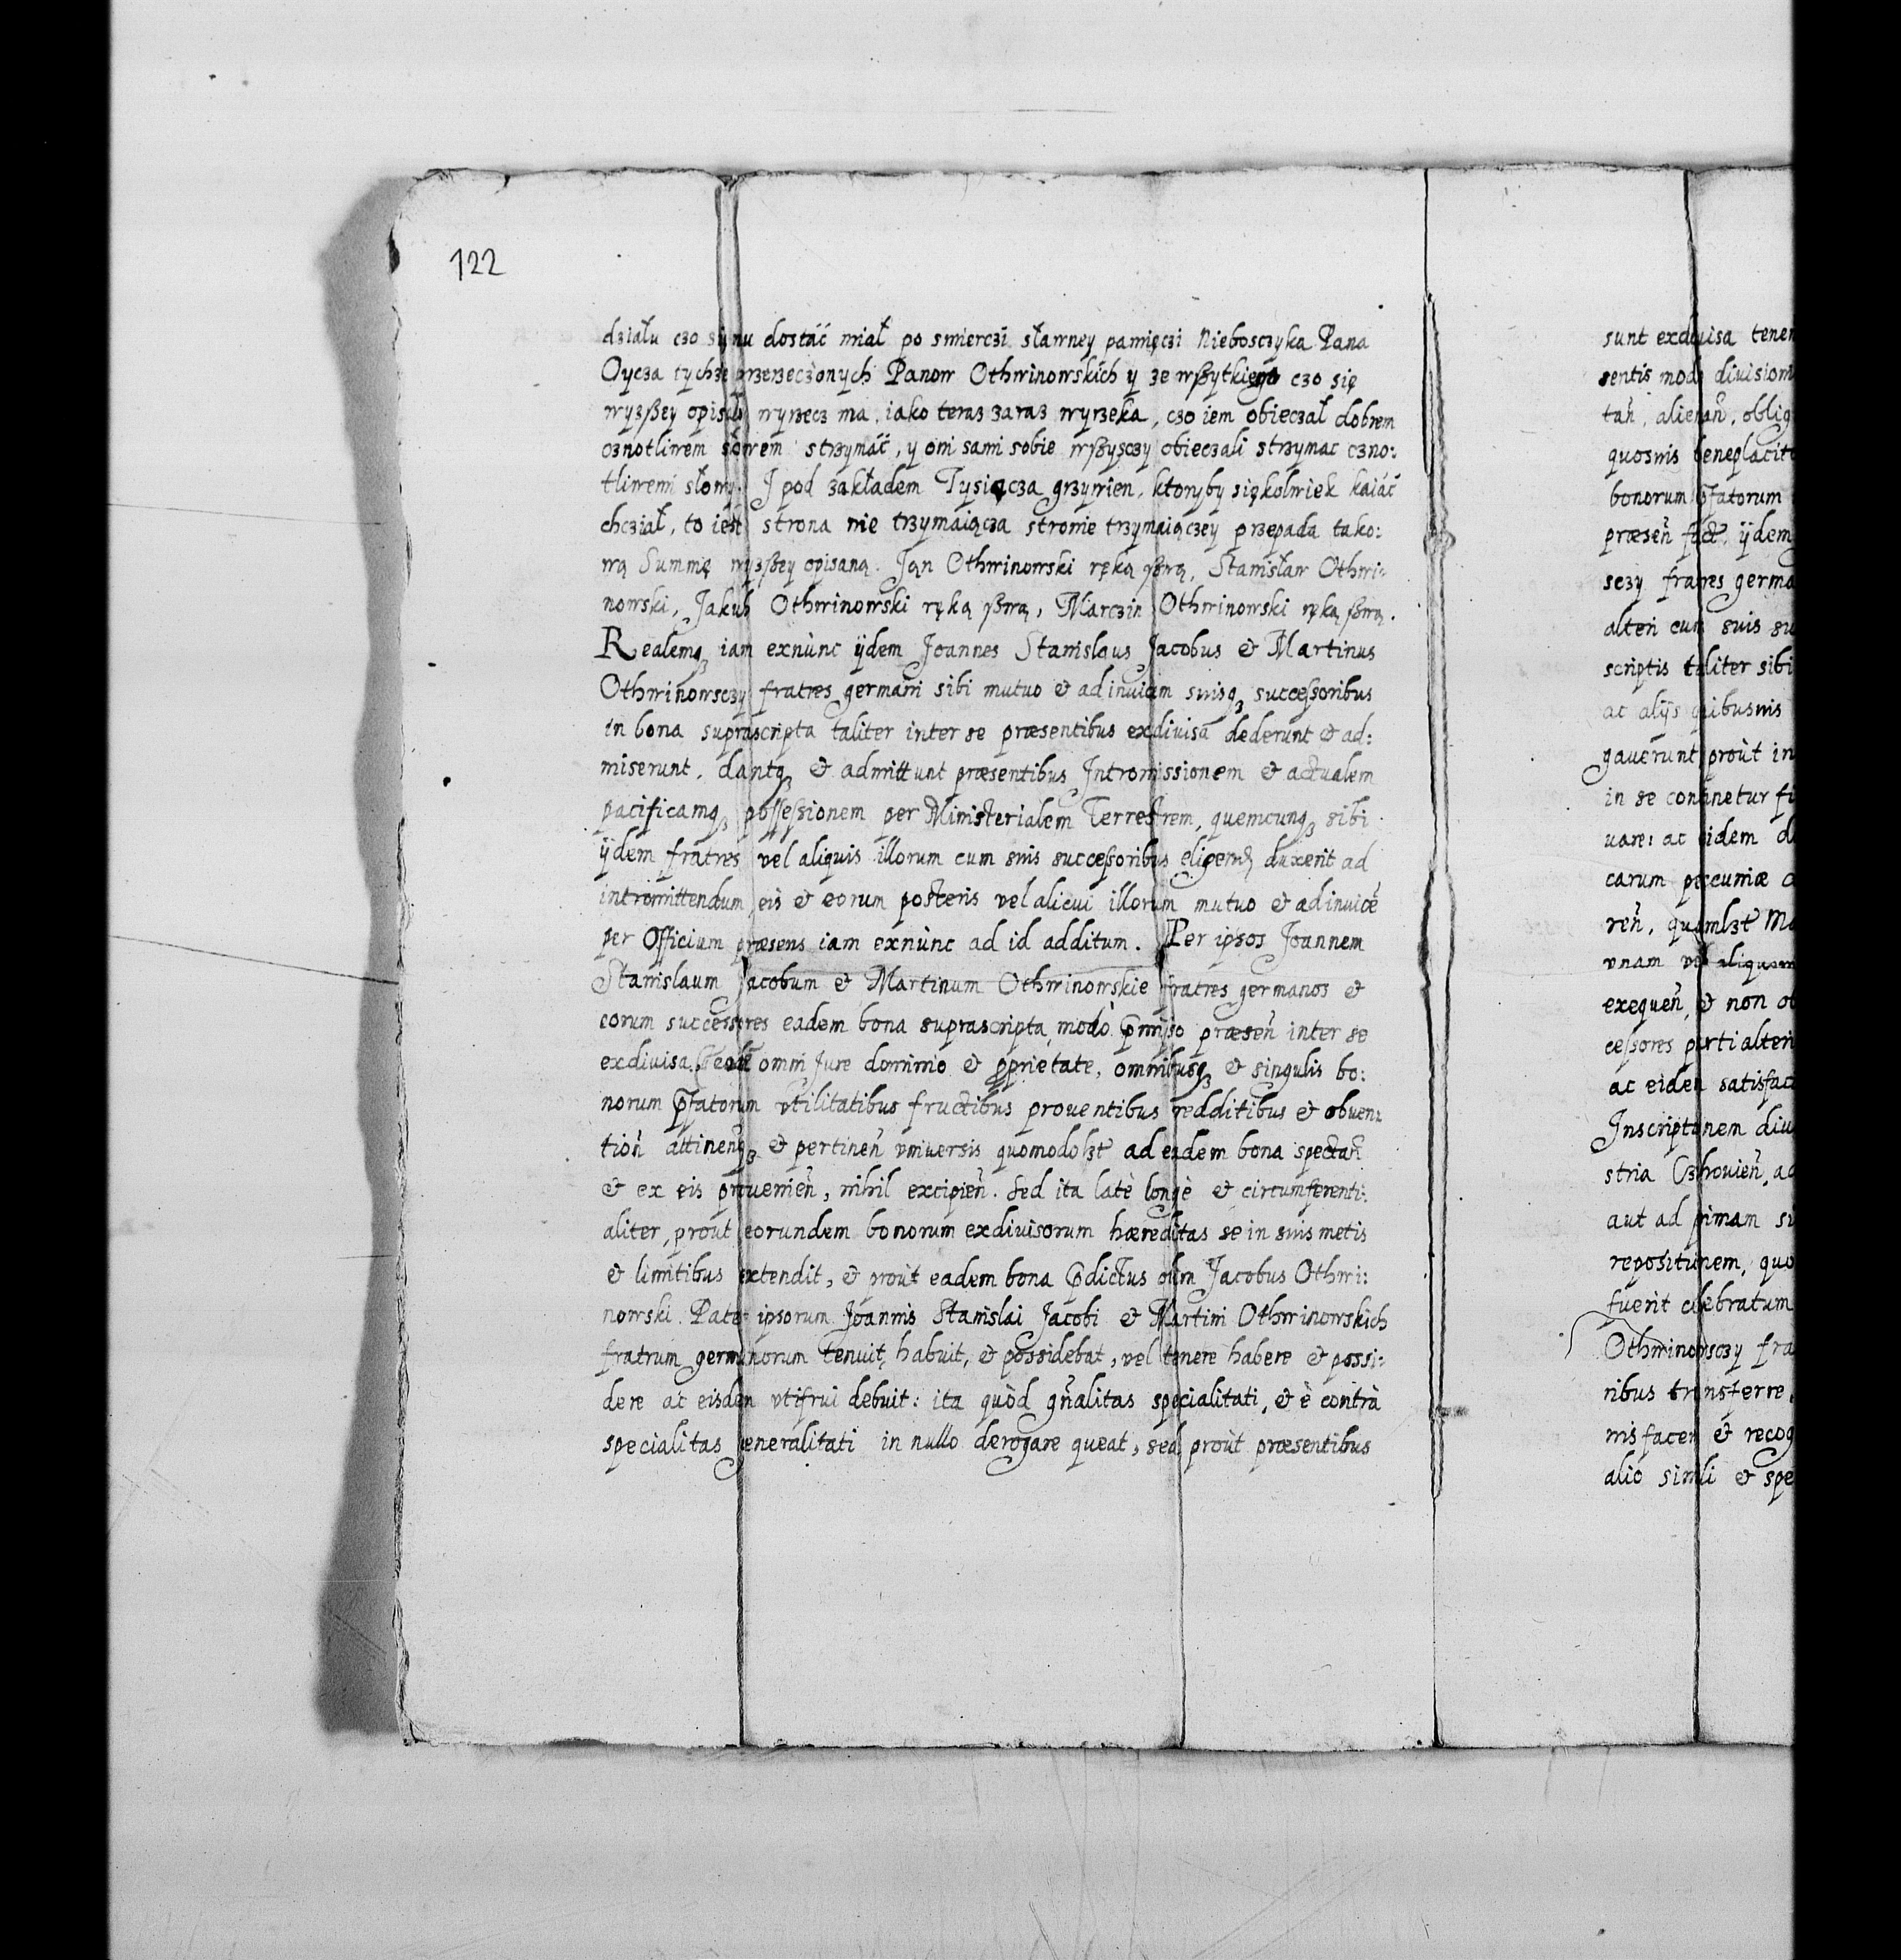 122
działu czo synu dostać miał po smierczi sławney pamięczi Nieboszczyka Pana
Oycza tychże przerzeczonych Panow Othwinowskich y ze wßytkiego czo się
wyzßey opisało wyrzecz ma, iako teraz zaraz wyrzeka, czo iem obieczał dobrem
cznotliwem słowem strzymáć, y oni sami sobie wßysczy obieczali strzymac czno:
tliwemi słowy. J pod zakładem Tysiącza grzywien, ktoryby siękolwiek kaiáć
chcział, to iest strona nie trzymaiącza stronie trzymaiączey przepada tako:
wą Summę wyzßey opisaną. Jan Othwinowski ręką ßwą, Stanisław Othwi:
nowski, Jakub Othwinowski ręką ßwą, Marczin Othwinowski ręką ßwą.
Realemqꝫ iam exnùnc ijdem Joannes Stanislaus Jacobus & Martinus
Othwinowsczy fratres germani sibi mutuo & adinuicem suisqꝫ successoribus
in bona suprascripta taliter inter se præsentibus exdiuisa dederunt & ad:
miserunt, dantqꝫ & admittunt præsentibus Intromissionem & actualem
pacificamqꝫ possessionem per Ministerialem Terrestrem, quemcunqꝫ sibi
ijdem fratres vel aliquis illorum cum suis successoribus eligend duxerit ad
intromittendum eis & eorum posteris vel alicui illorum mutuo & adinuicē
per Officium præsens iam exnùnc ad id additum. Per ipsos Joannem
Stanislaum Jacobum & Martinum Othwinowskie fratres germanos &
eorum successores eadem bona suprascripta modò p̄misso præseñ inter se
exdiuisa omni Jure dominio & ꝓprietate, omnibusqꝫ & singulis bo:
norum p̄fatorum vtilitatibus fructibus prouentibus redditibus & obuen:
tioñ attineñqꝫ & pertineñ vniuersis quomodolꝫt ad eadem bona spectañ
& ex eis prouenieñ, nihil excipieñ. Sed ita latè longè & circumferenti:
aliter, prout eorundem bonorum exdiuisorum hæreditas se in suis metis
& limitibus extendit, & proùt eadem bona p̄dictus olim Jacobus Othwi:
nowski Pater ipsorum Joannis Stanislai Jacobi & Martini Othwinowskich
fratrum germanorum tenuit, habuit, & possidebat, vel tenere habere & possi:
dere ac eisdem vtifrui debuit: ita quòd gñalitas specialitati, & è contrà
specialitas generalitati in nullo derogare queat, sed proùt præsentibus
sunt exdiuisa tenen
sentis modi diuision
tañ, alienañ, oblig
quosuis beneplacit
bonorum p̄fatorum
præseñ ijdem
sczy fratres germa
alteri cum suis su
scriptis taliter sibi
ac alijs quibusuis
gauerunt proùt in
in se continetur fi
uare: ac eidem d
carum pecuniæ
reñ, quamlꝫt Mo
vnam vel aliquam
exequeñ, & non ob
cessores parti alteri
ac eidem satisfac
Inscriptionem diu
stria ad
aut ad primam si
repositionem, quo
fuerit celebratum
Othwinowsczy fra
ribus transferre,
nis facere & recog
alio simili & spe